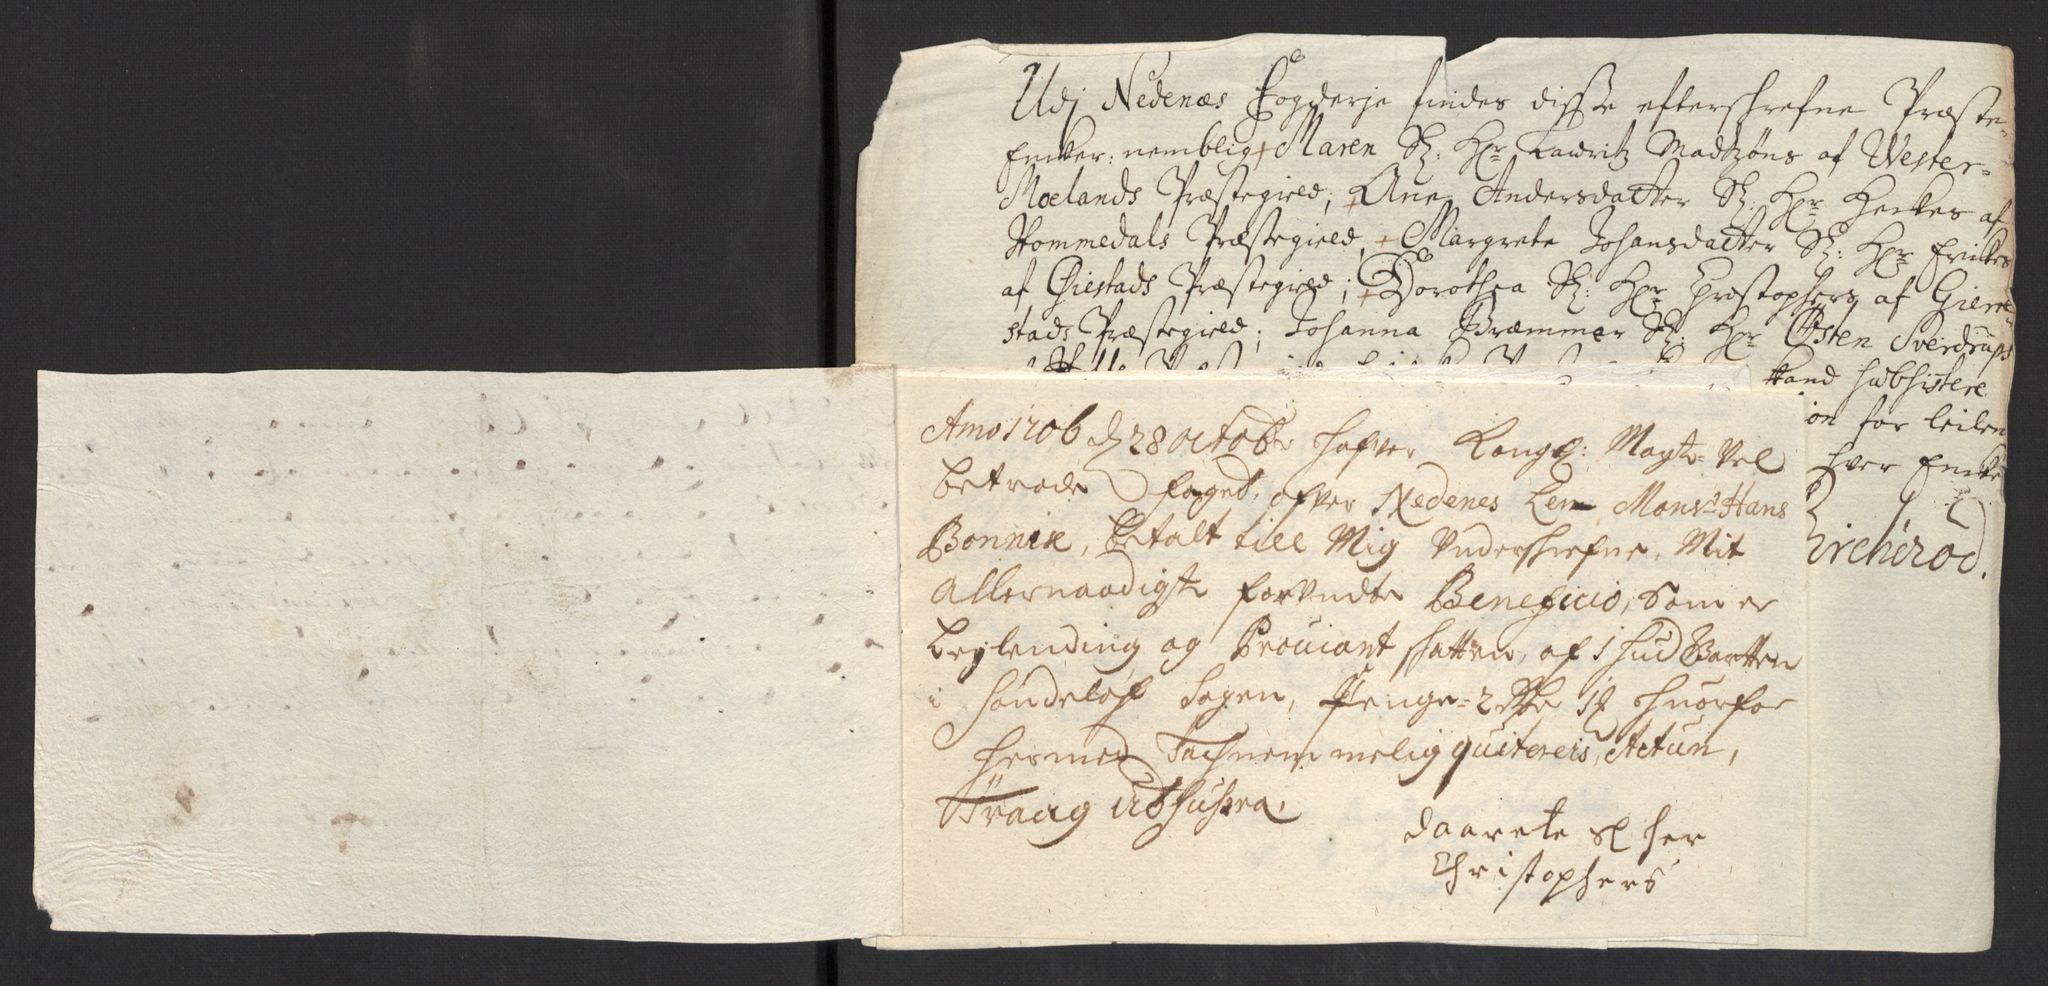 Udj Nedenæs Fogderje findes disse efterschrefne Præste-
Encker: nemblig Maren Sl: Hr Lauritz Madtzøns af Wester-
Moelands Præstegield; Ane Andersdatter Sl: Hr Henkes af
Hommedals Præstegield, Margrete Johansdatter Sl: Hr Enikes
af Øiestads Præstegield; Dorothea Sl: Hr Christophers af Gierre-
stads Præstegield; Johanna Bræmmer Sl: Hr Østen Sverdrups
kand subsistere
ion for leilen
hver Encke
Anno 1706 d 28 Octobr hafver Kongl: Mayts Vel
betrode Foged, ofver Nedenes Len Monsr Hans
Bonnix, betalt till Mig Underschrefne, Mit
Allernaadigst forundte Beneficio, som er
Leylending og Proviant skatten, af 1 hud Partten
i Søndeløf Sogen, Penge = 2 Rdr huorfor
hermed Tachnemmelig quitereis, Actum,
Fraag Udhusza.
daarete Sl her
Christophers